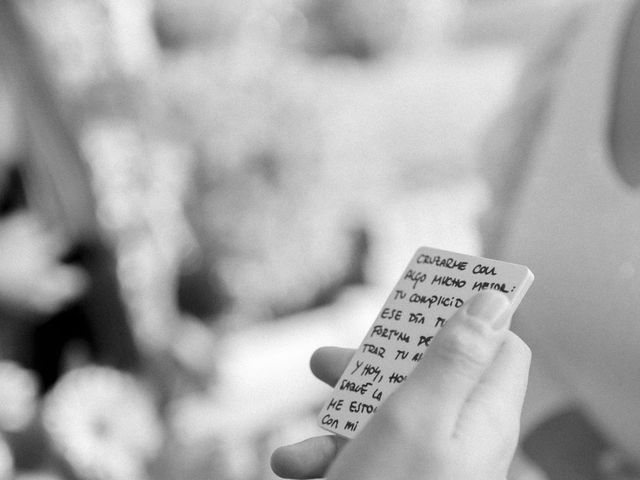 CRUZARME CON
ALGO MUCHO MEJOR:
TU COMPLICID
ESE DÍA TU
FORTUNA DE
TRAR TU A
Y HOY, HO
SAQUÉ LA
ME ESTO
CON MI